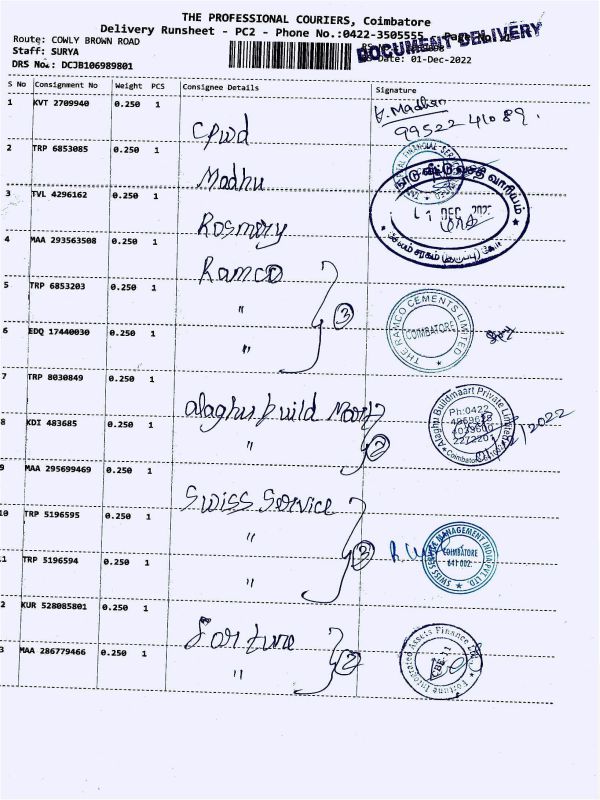 THE PROFESSIONAL COURIERS, Coimbatore
Delivery Runsheet - PC2 - Phone No.:0422-3505555
DOCUMENT DELIVERY
Route: COWLY BROWN ROAD
Staff: SURYA
Date: 01-Dec-2022
DRS No.: DCJB106989801
S No Consignment No Weight PCS Consignee Details Signature
1 KVT 2709940 0.250 1 Cpwd
V. Madhan
99522 41089.
2 TRP 6853085 0.250 1 Madhu
3 TVL 4296162 0.250 1 Rosmery
DEC
4 MAA 293563508 0.250 1 Ramco
5 TRP 6853203 0.250 1 "
3
THE RAMCO CEMENTS LIMITED
COIMBATORE
6 EDQ 17440030 0.250 1 "
7 TRP 8030849 0.250 1 alaghu build Mart
Alaghu Buildmaart Private Limited
Ph:0422
Coimbatore
8 KDI 483685 0.250 1 "
2
9 MAA 295699469 0.250 1 Swiss Service
10 TRP 5196595 0.250 1 "
3
SWISS SERVICE MANAGEMENT INDIA PVT LTD.
COIMBATORE
641 002.
11 TRP 5196594 0.250 1 "
2 KUR 528085801 0.250 1 Fortune
3 MAA 286779466 0.250 1 "
2
Fortune Integrated Assets Finance Ltd
CBE